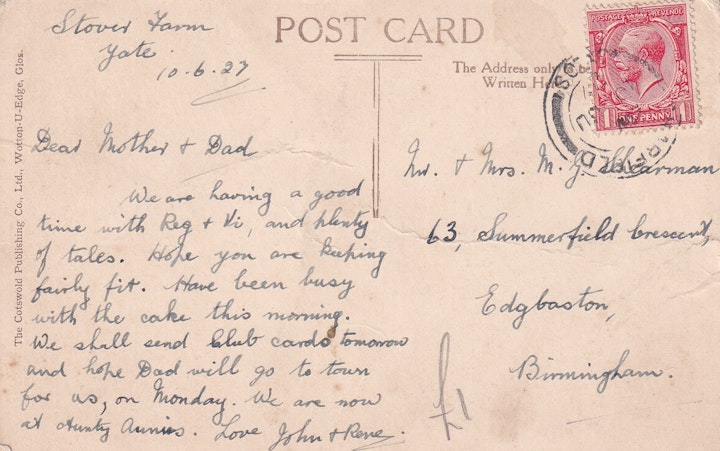 Stover Farm
Yate.
10.6.27
POST CARD
The Address only
Written
POSTAGE REVENUE
ONE PENNY
Dear Mother & Dad
We are having a good
time with Reg & Vi, and plenty
of tales. Hope you are keeping
fairly fit. Have been busy
with the cake this morning.
We shall send Club cards tomorrow
and hope Dad will go to town
for us, on Monday. We are now
at Aunty Annies. Love John & Rene.
Mr. & Mrs. M. G. Shearman
63, Summerfield Crescent,
Edgbaston,
Birmingham.
£1
The Cotswold Publishing Co., Ltd., Wotton-U-Edge, Glos.